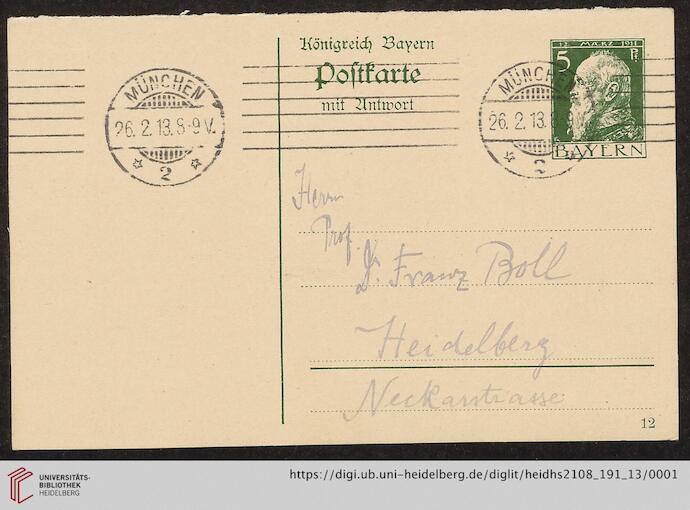 Königreich Bayern
Postkarte
mit Antwort
12. MÄRZ 1911
5 Pf.
BAYERN
MÜNCHEN
26. 2. 13. 8-9 V.
2
MÜNCHEN
26. 2. 13. 8-9
2
Herrn
Prof.
Dr. Franz Boll
Heidelberg
Neckarstrasse
12
UNIVERSITÄTS-
BIBLIOTHEK
HEIDELBERG
https://digi.ub.uni-heidelberg.de/diglit/heidhs2108_191_13/0001